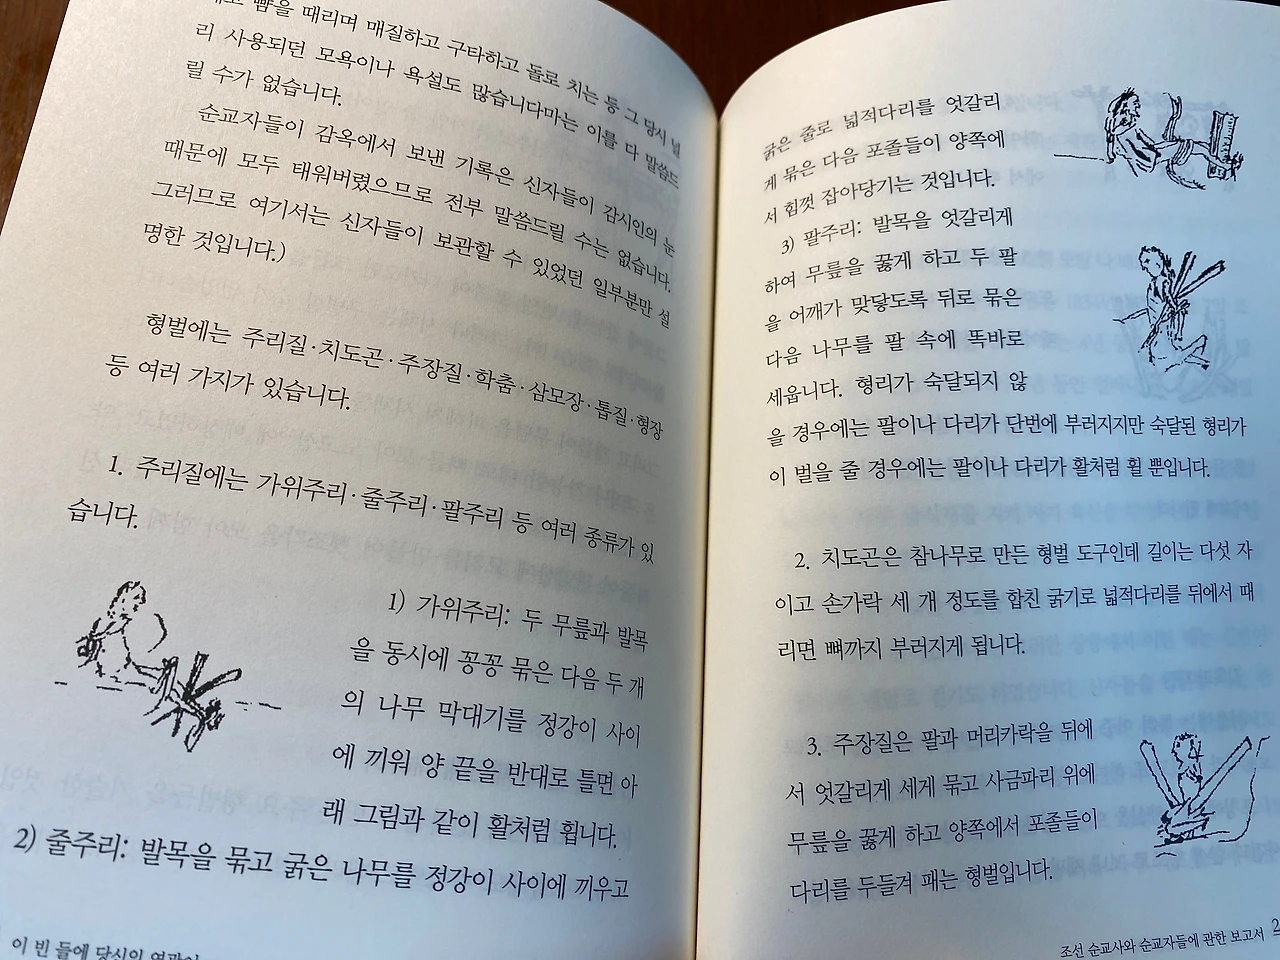 뺨을 때리며 매질하고 구타하고 돌로 치는 등 그 당시 널
리 사용되던 모욕이나 욕설도 많습니다마는 이를 다 말씀드
릴 수가 없습니다.
순교자들이 감옥에서 보낸 기록은 신자들이 감시인의 눈
때문에 모두 태워버렸으므로 전부 말씀드릴 수는 없습니다.
그러므로 여기서는 신자들이 보관할 수 있었던 일부분만 설
명한 것입니다.)
형벌에는 주리질·치도곤·주장질·학춤·삼모장·톱질·형장
등 여러 가지가 있습니다.
1. 주리질에는 가위주리·줄주리·팔주리 등 여러 종류가 있
습니다.
1) 가위주리: 두 무릎과 발목
을 동시에 꽁꽁 묶은 다음 두 개
의 나무 막대기를 정강이 사이
에 끼워 양 끝을 반대로 틀면 아
래 그림과 같이 활처럼 휩니다.
2) 줄주리: 발목을 묶고 굵은 나무를 정강이 사이에 끼우고
이 빈 들에 당신의
굵은 줄로 넓적다리를 엇갈리
게 묶은 다음 포졸들이 양쪽에
서 힘껏 잡아당기는 것입니다.
3) 팔주리: 발목을 엇갈리게
하여 무릎을 꿇게 하고 두 팔
을 어깨가 맞닿도록 뒤로 묶은
다음 나무를 팔 속에 똑바로
세웁니다. 형리가 숙달되지 않
을 경우에는 팔이나 다리가 단번에 부러지지만 숙달된 형리가
이 벌을 줄 경우에는 팔이나 다리가 활처럼 휠 뿐입니다.
2. 치도곤은 참나무로 만든 형벌 도구인데 길이는 다섯 자
이고 손가락 세 개 정도를 합친 굵기로 넓적다리를 뒤에서 때
리면 뼈까지 부러지게 됩니다.
3. 주장질은 팔과 머리카락을 뒤에
서 엇갈리게 세게 묶고 사금파리 위에
무릎을 꿇게 하고 양쪽에서 포졸들이
다리를 두들겨 패는 형벌입니다.
조선 순교사와 순교자들에 관한 보고서